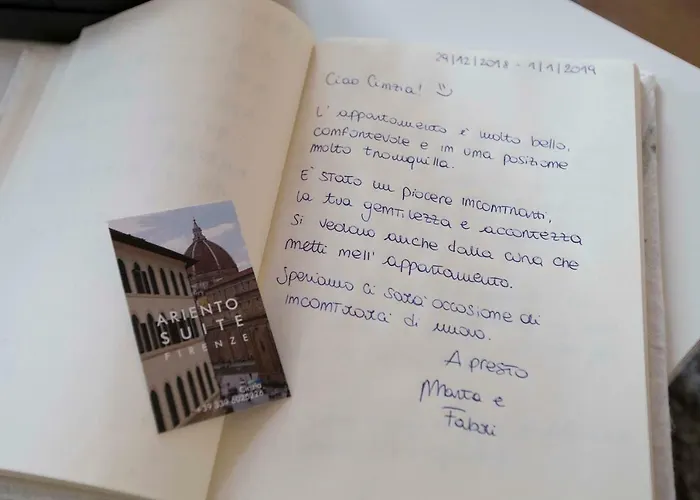 29/12/2018 - 1/1/2019
Ciao Cinzia! :)
L'appartamento è molto bello,
confortevole e in una posizione
molto tranquilla.
È stato un piacere incontrarti,
la tua gentilezza e accortezza
si vedono anche dalla cura che
metti nell'appartamento.
Speriamo ci sarà occasione di
incontrarci di nuovo.
A presto
Marta e
Fabri
ARIENTO
SUITE
FIRENZE
Cinzia